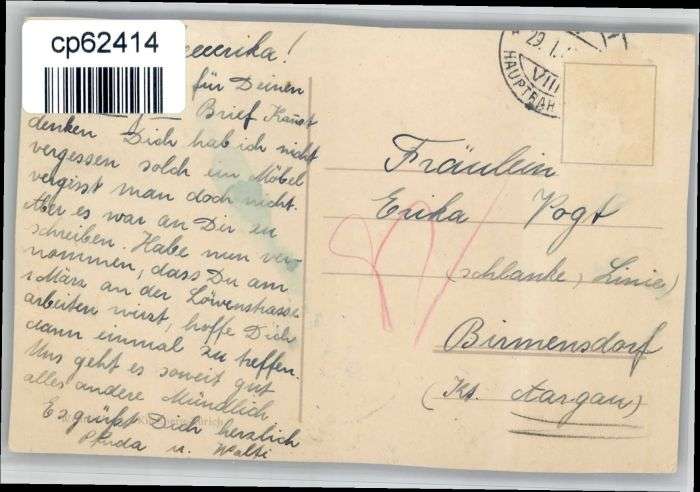 cp62414
für Deinen
Brief Kanst
denken Dich hab ich nicht
vergessen solch ein Möbel
vergisst man doch nicht.
Aber es war an Dir zu
schreiben. Habe nun ver-
nommen, dass Du am
1 März an der Löwenstrasse
arbeiten wirst, hoffe Dich
dann einmal zu treffen.
Uns geht es soweit gut
alles andere Mündlich
Es grüsst Dich herzlich
u. Walti
Fräulein
Erika Vogt
(schlanke, Linie)
Birmensdorf
(Kt. Aargau)
29. I.
VIII
HAUPTBAH